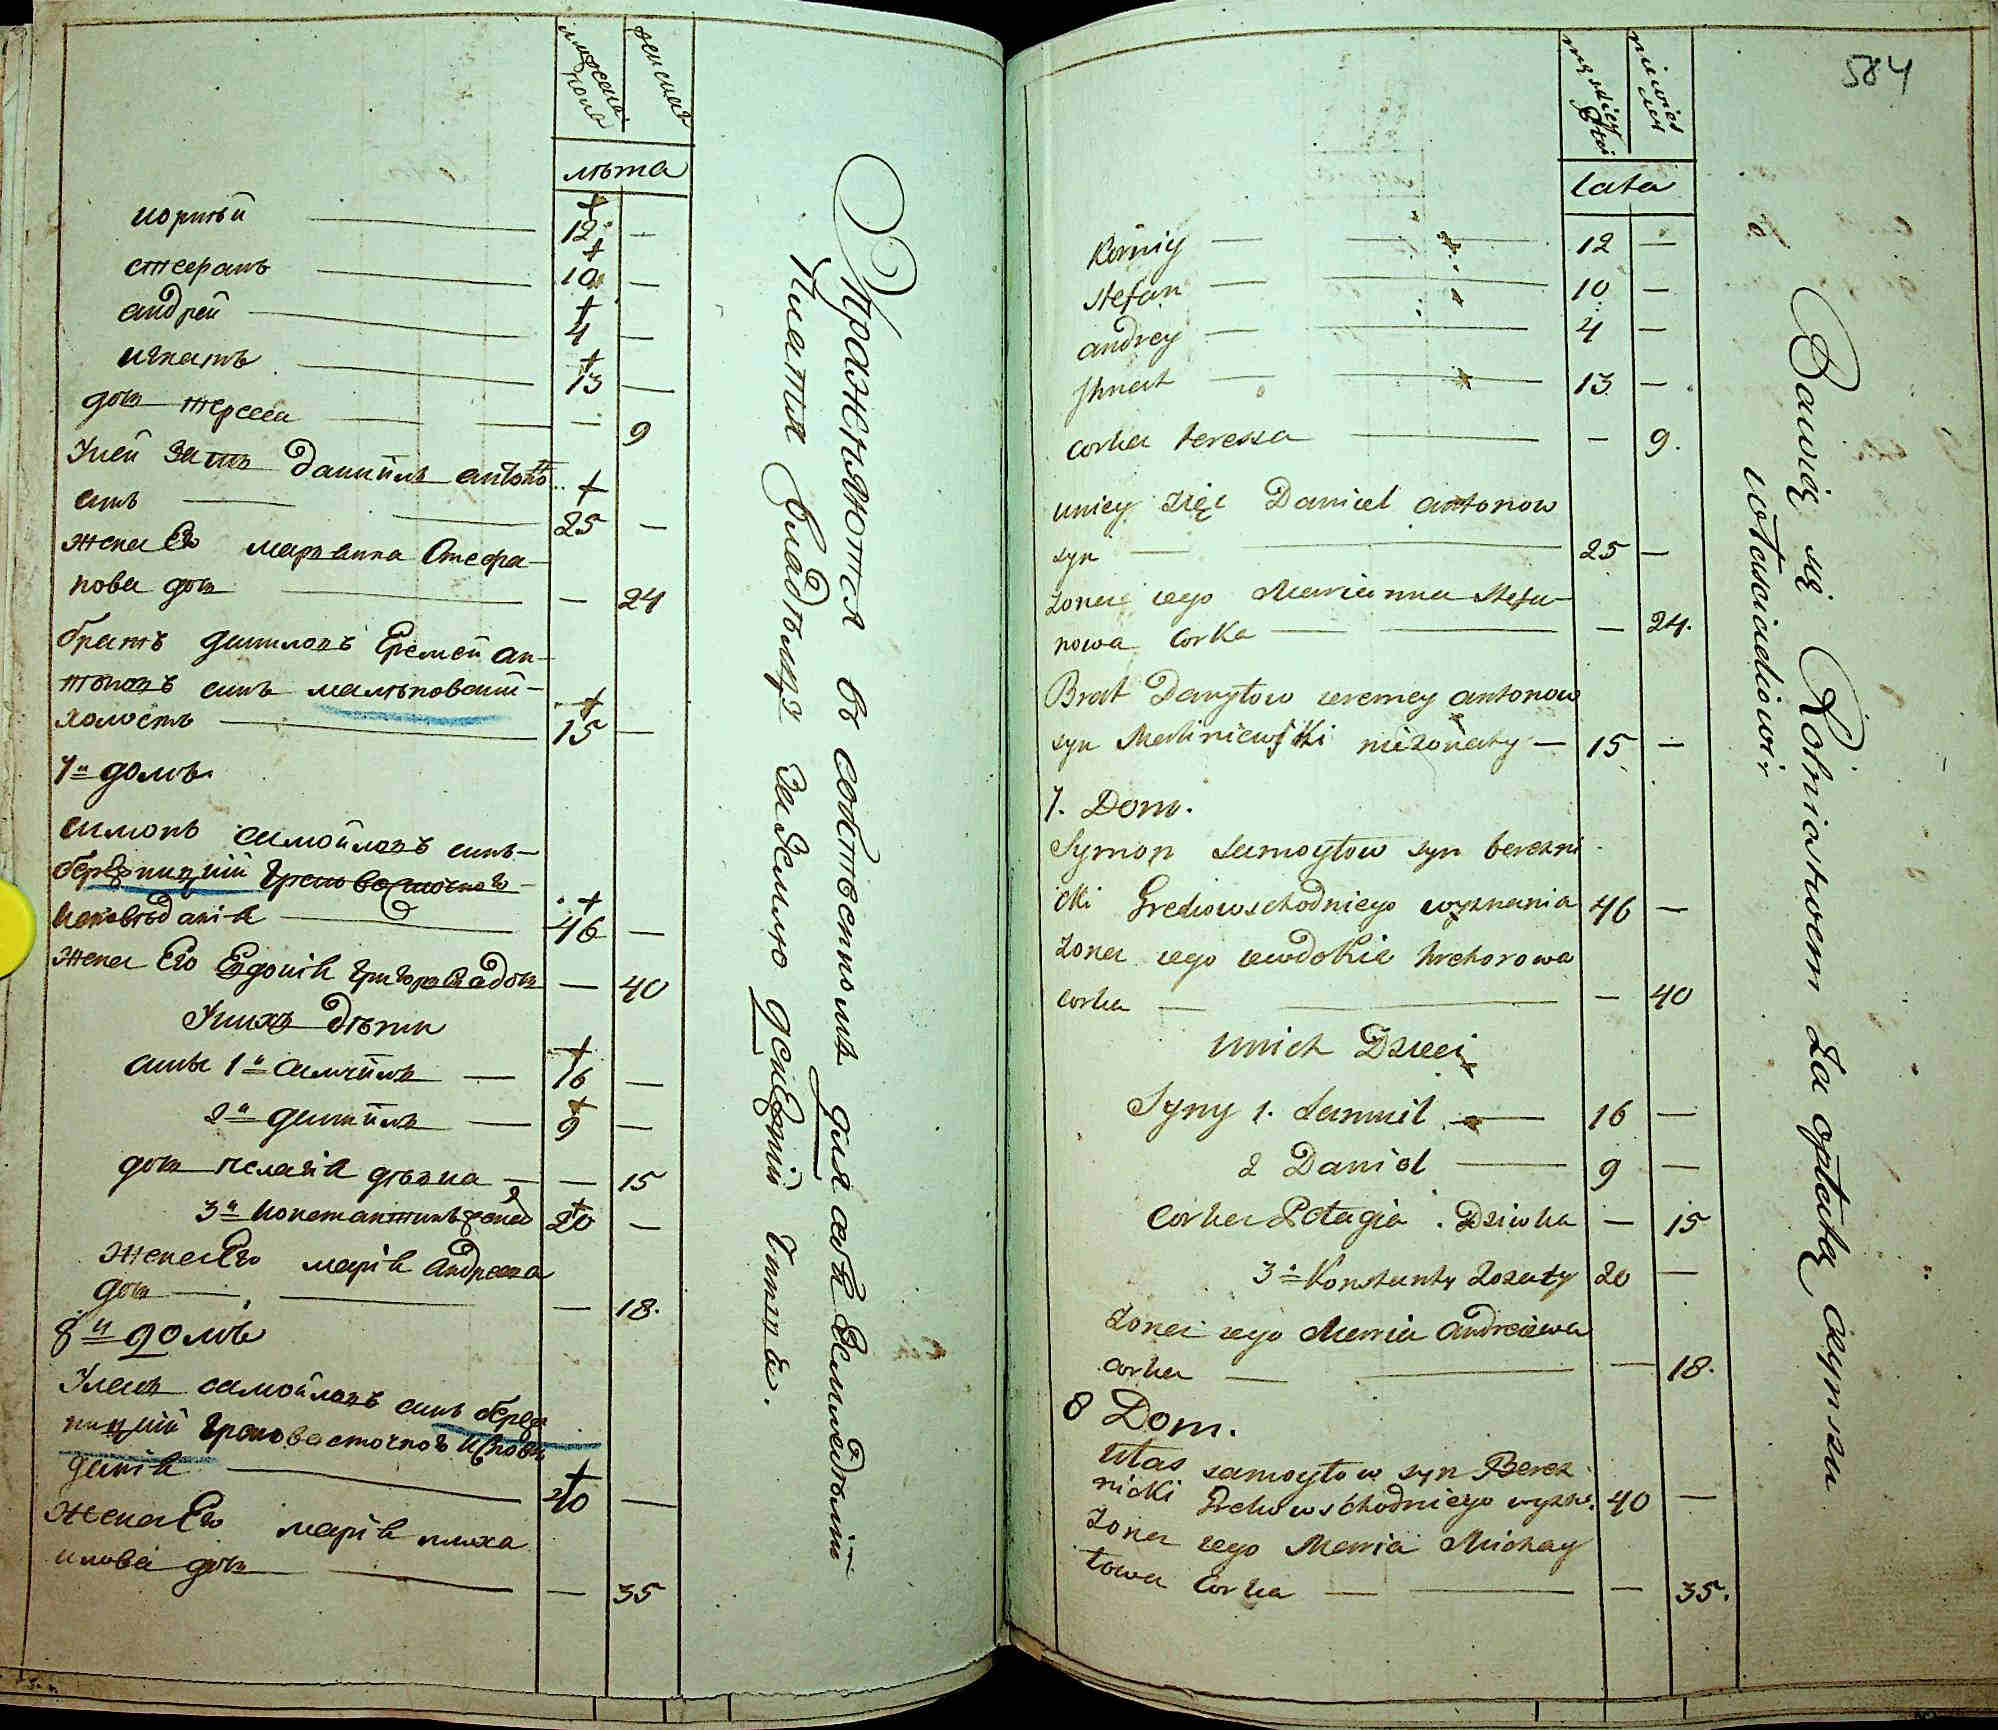 мужеска пола
женска
лѣта
корнѣй — 12 —
стефанъ — 10 —
андрей — 4 —
игнатъ — 13 —
дочь тереса — — 9
Уней зять данiилъ антоно
синъ — 25 —
жена Его марьянна Стефа-
нова дочь — — 24
братъ даниловъ Еремей ан-
тоновъ синъ малѣновский-
холостъ — 15 —
7й домъ
симонъ самойловъ синъ-
березницкий Греко восточного-
исповѣданiя — 46 —
жена Его Евдокiя григорова дочь — 40
У нихъ дѣти
сины 1й самуилъ — 16 —
2й данiилъ — 9 —
дочь пелагiя дѣвка — — 15
3й константинъ 20 —
жена Его марiя андреева
дочь — — 18.
8й домъ
Уласъ самойловъ синъ берез
ницкий Греко восточного исповѣ
данiя — 40 —
жена Его марiя миха
илова дочь — — 35
Упражняются въ собственномъ для себя Земледѣлiи
Платя Владѣльцу За Землю денежный Чиншъ.
584
męzkiey płci
niewies
lata
Korniy — 12 —
Stefan — 10 —
andrey — 4 —
Jhnat — 13 —
corka teressa — — 9.
uniey zięć Daniel antonow
syn — 25 —
żona iego Marianna Stefa-
nowa corka — — 24.
Brat Danyłow ieremey antonow
syn Maliniewski nieżonaty — 15 —
7. Dom.
Symon samoyłow syn berezni
cki Grekowschodniego wyznania 46 —
żona iego iewdokia hrehorowa
corka — — 40
unich Dzieci
Syny 1. Samuil — 16 —
2 Daniel — 9 —
corka Pełagia Dziwka — 15
3. Konstanty żonaty 20 —
żona iego Maria andreiewa
corka — — 18.
8 Dom.
Ułas samoyłow syn Berez
nicki Grekowschodniego wyzn. 40 —
żona iego Maria Michay
łowa corka — — 35.
Bawią się Rolnictwem za opłatą czynszu
właścicielowi